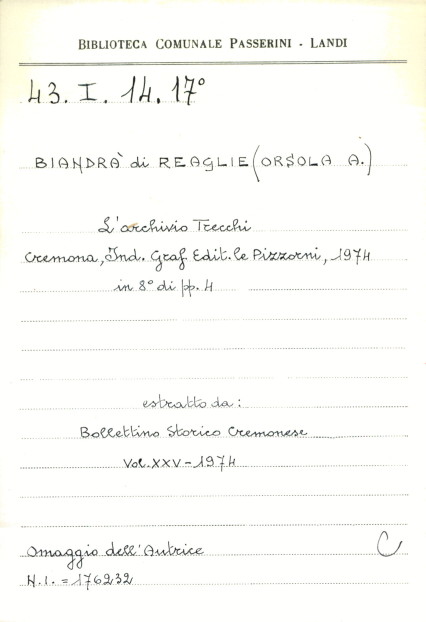 BIBLIOTECA COMUNALE PASSERINI - LANDI
43. I. 14. 17°
BIANDRÀ di REAGLIE (ORSOLA A.)
L'archivio Trecchi
Cremona, Ind. Graf. Edit.le Pizzorni, 1974
in 8° di pp. 4
estratto da:
Bollettino Storico Cremonese
Vol. XXV - 1974
Omaggio dell'Autrice
C
N.I. = 176232